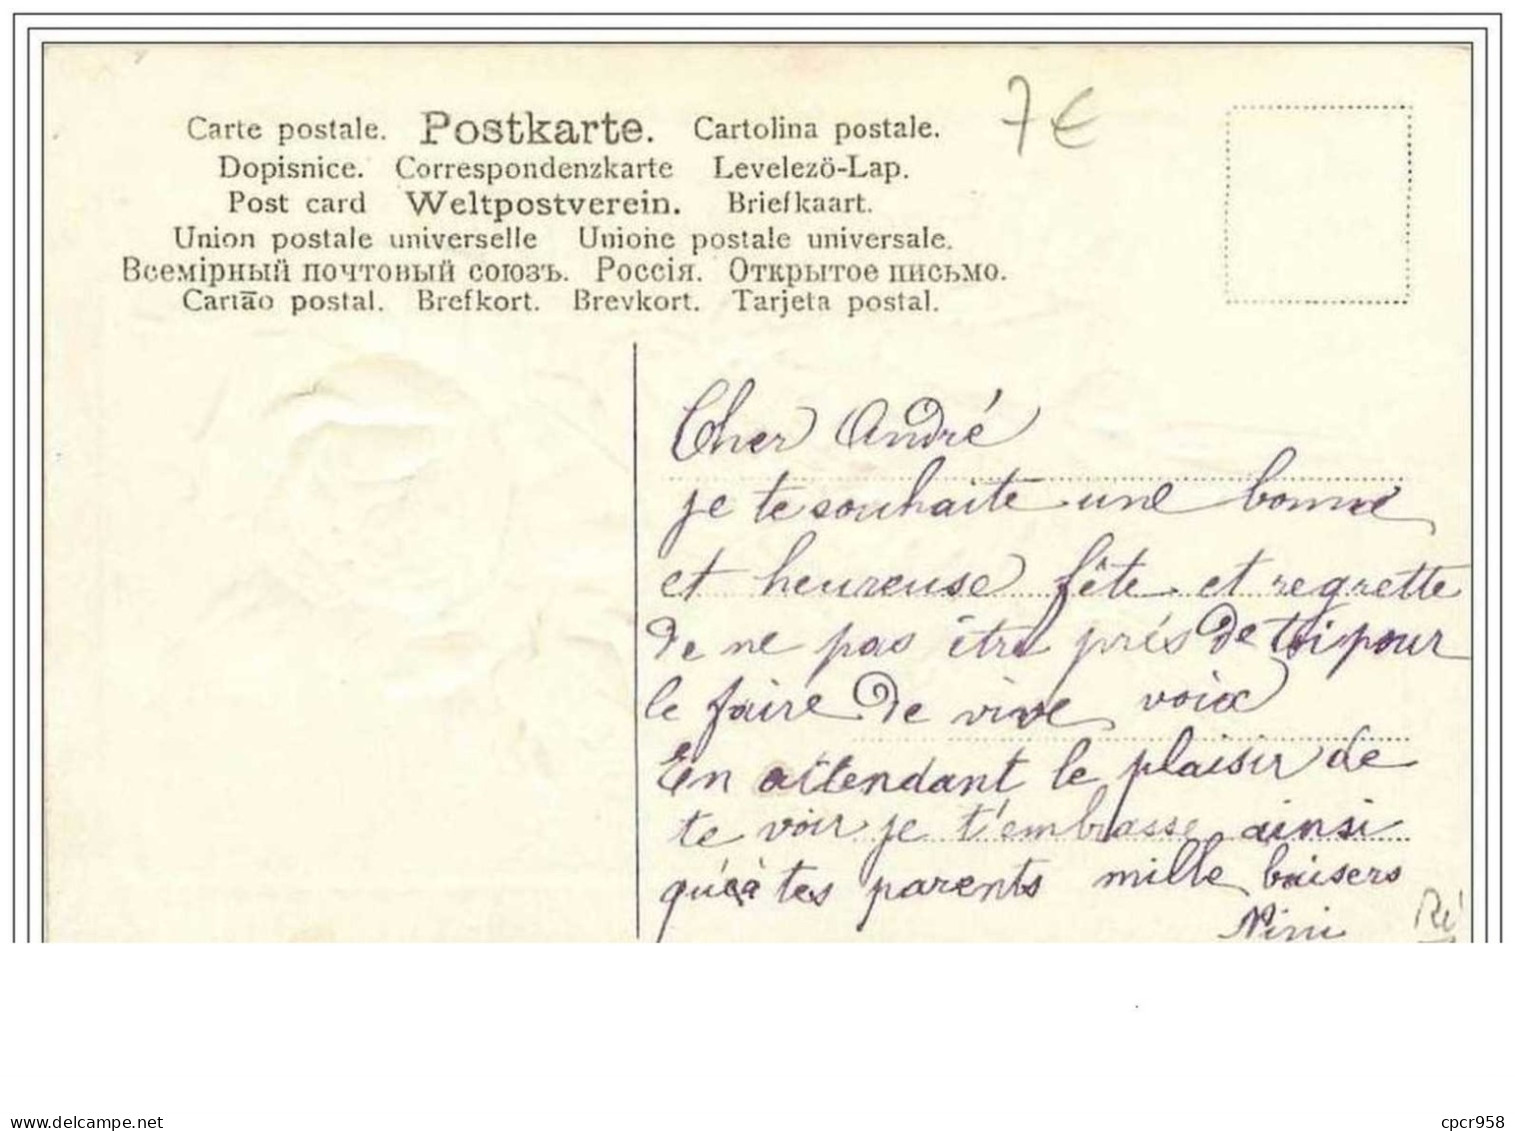 Carte postale. Postkarte. Cartolina postale.
7€
Dopisnice. Correspondenzkarte Levelező-Lap.
Post card Weltpostverein. Briefkaart.
Union postale universelle Unione postale universale.
Всемірный почтовый союзъ. Россія. Открытое письмо.
Cartão postal. Brefkort. Brevkort. Tarjeta postal.
Cher André
je te souhaite une bonne
et heureuse fête et regrette
de ne pas être près de toi pour
le faire de vive voix
En attendant le plaisir de
te voir je t'embrasse ainsi
qu'à tes parents mille baisers
Nini
www.delcampe.net
cpcr958